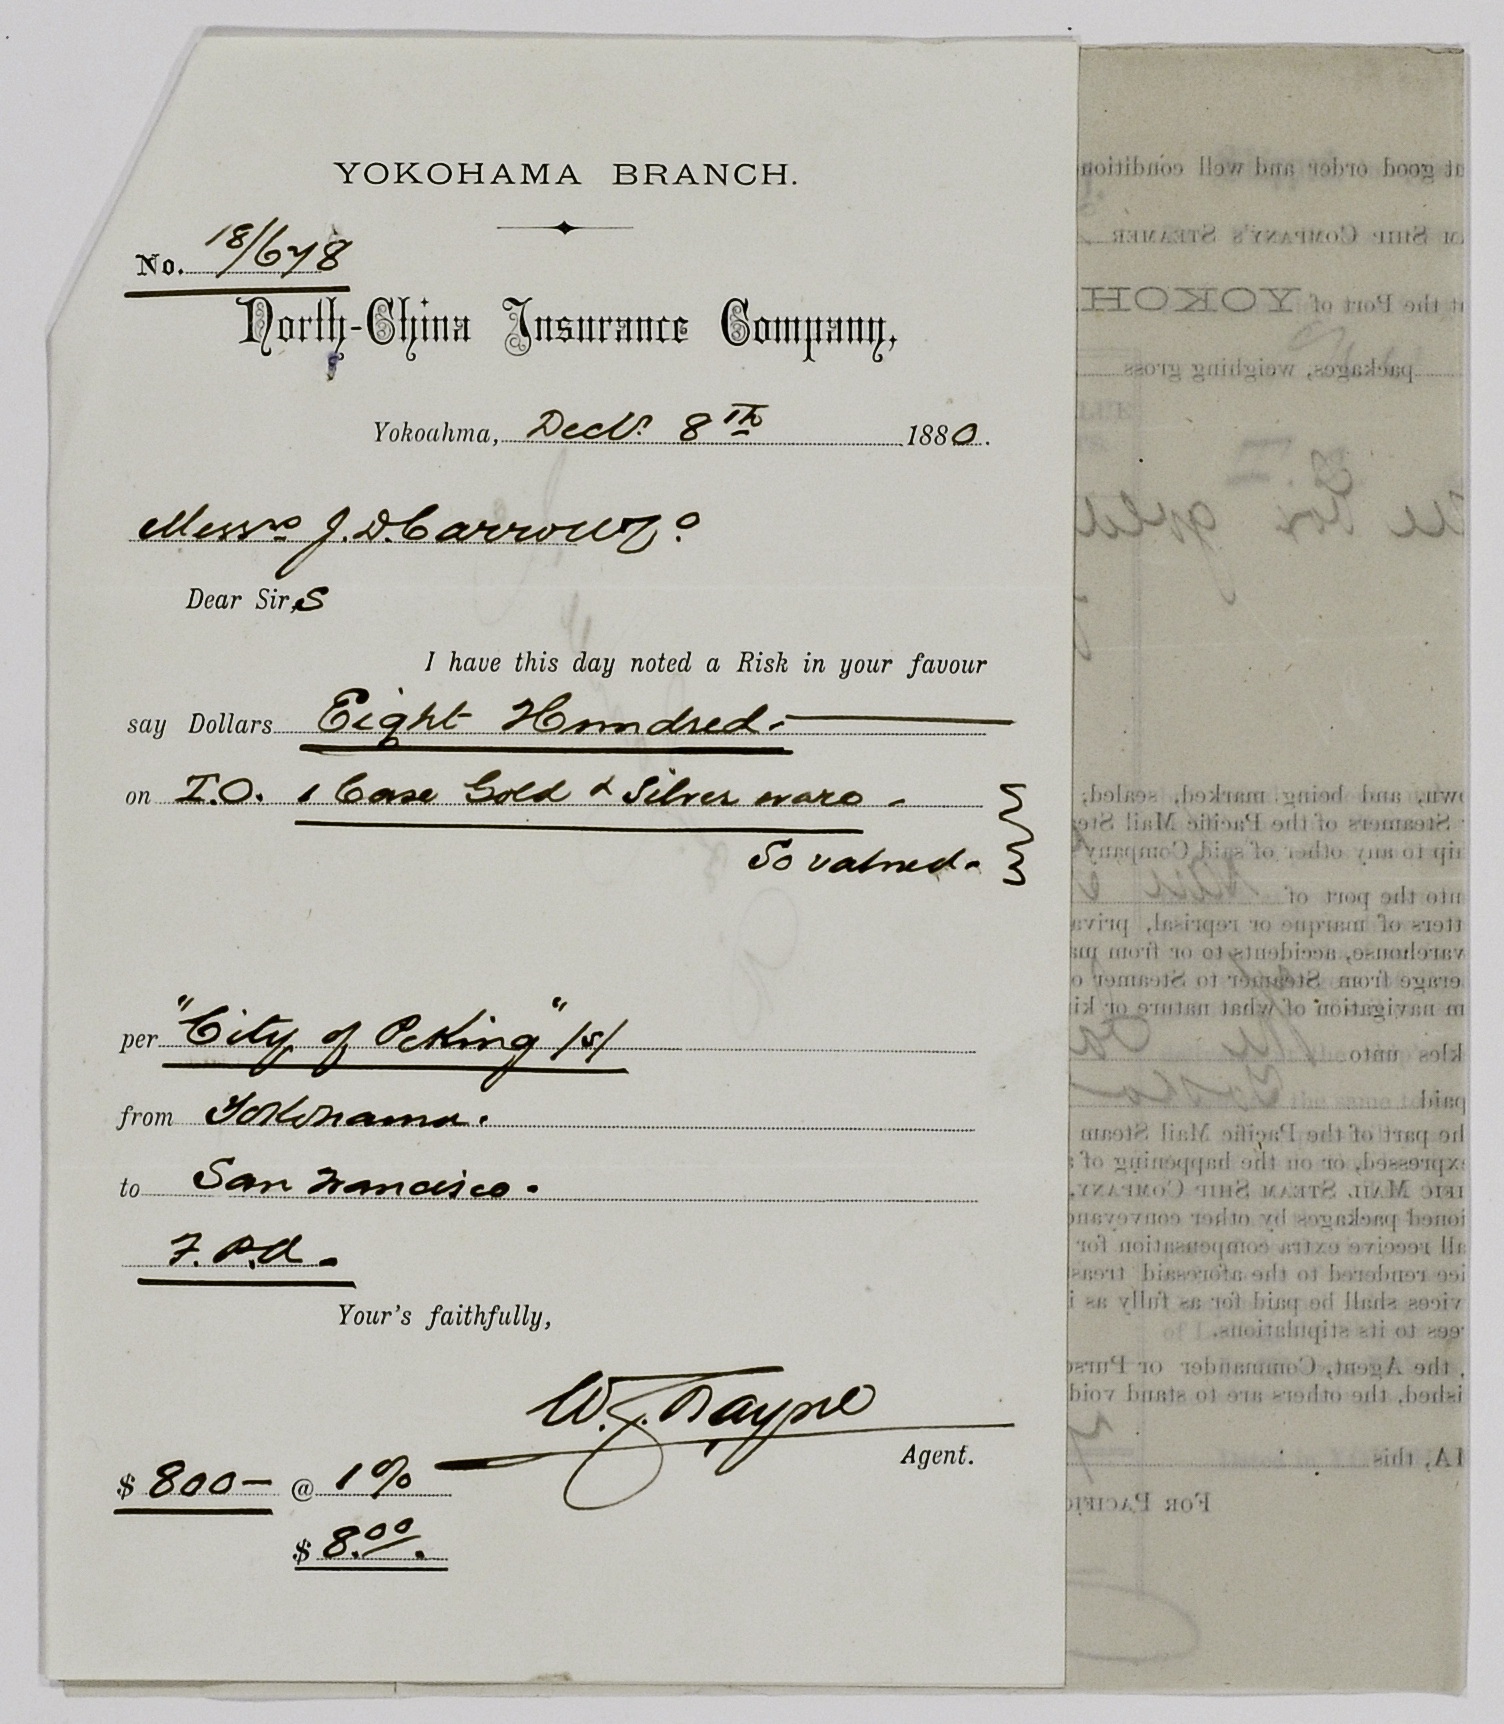 YOKOHAMA BRANCH.
No. 18/678
North-China Insurance Company,
Yokoahma, Decbr. 8th 1880.
Messrs J. D. Carroll & Co
Dear Sir,s
I have this day noted a Risk in your favour
say Dollars Eight Hundred.
on I.O. 1 Case Gold & Silver ware -
So valued.
per "City of Peking" (s)
from Yokohama.
to San Francisco.
F.P.A.
Your's faithfully,
W. J.
Agent.
$ 800- @ 1 %
$ 8.00.
t good order and well condition
m Ship Company's Steamer
t the Port of YOKOH
packages, weighing gross
gold
own, and being marked, sealed;
Steamers of the Pacific Mail Ste
ip to any other of said Company
nto the port of San
tters of marque or reprisal, priva
warehouse, accidents to or from
erage from Steamer to Steamer o
m navigation of what nature or ki
kles unto
paid
he part of the Pacific Mail Steam
expressed, or on the happening of
ific Mail Steam Ship Company,
ioned packages by other conveyan
all receive extra compensation for
ice rendered to the aforesaid treas
vices shall be paid for as fully as i
rees to its stipulations.
, the Agent, Commander or Purs
ished, the others are to stand void
MA, this
For Pacific